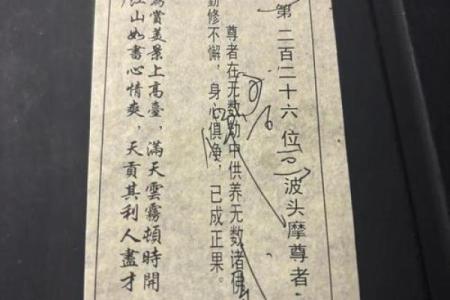 第二百二十六位波头摩尊者
尊者在无数劫中供养无数诸佛
勤修不懈，身心俱净，已成正果。
為賞美景上高臺，滿天雲霧頓時開
江山如畫心情爽，天貢其利人盡才